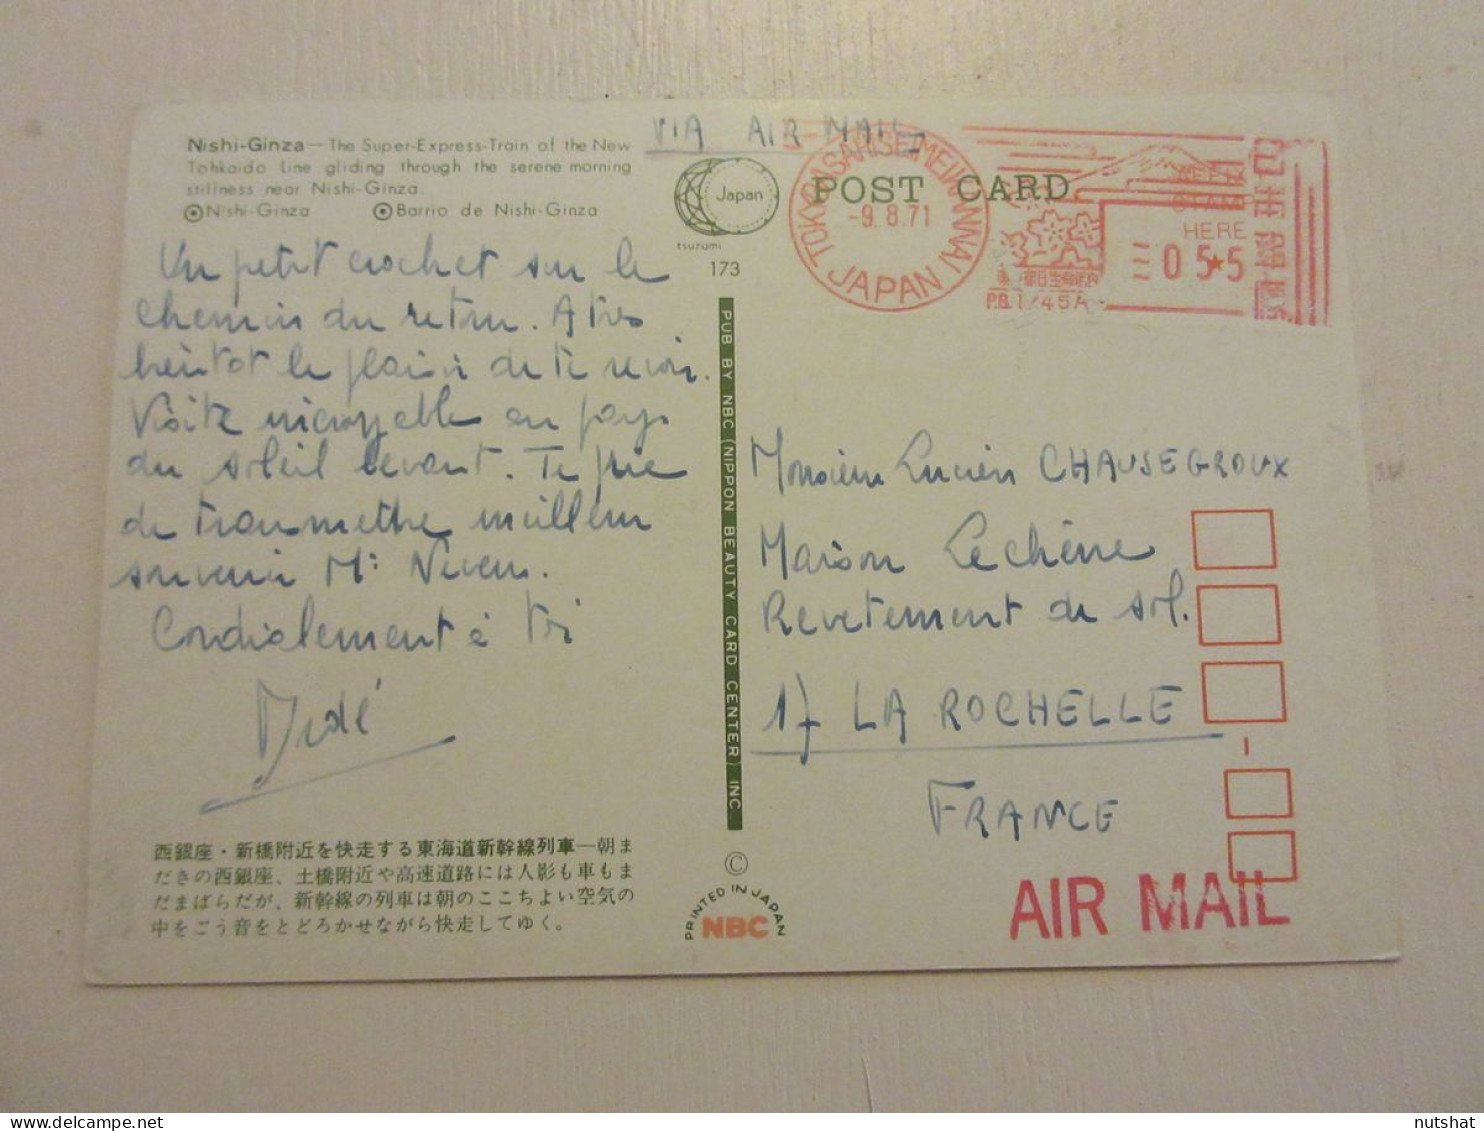 Nishi-Ginza — The Super-Express-Train of the New
Tohkaido Line gliding through the serene morning
stillness near Nishi-Ginza.
Nishi-Ginza Barrio de Nishi-Ginza
Un petit crochet sur le
chemin du retou. A tres
bientot le plaisir de te revoir.
Visite incroyable au pays
du soleil levant. Te prie
de transmettre meilleur
souvenir Mr
Cordialement à toi
西銀座・新橋附近を快走する東海道新幹線列車—朝ま
だきの西銀座、土橋附近や高速道路には人影も車もま
だまばらだが、新幹線の列車は朝のここちよい空気の
中をごう音をとどろかせながら快走してゆく。
VIA AIR MAIL
Japan
tsuzumi
173
POST CARD
-9.8.71
JAPAN
HERE
055
PUB BY NBC (NIPPON BEAUTY CARD CENTER) INC
Monsieur Lucien CHAUSEGROUX
Maison Lechêne
Revetement de sol.
17 LA ROCHELLE
FRANCE
AIR MAIL
©
PRINTED IN JAPAN
NBC
nutshat